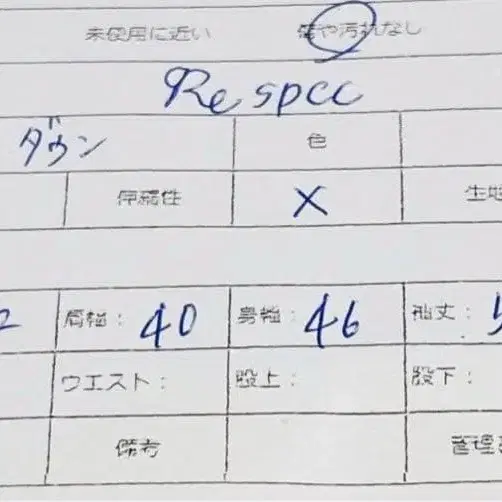 未使用に近い 傷や汚れなし
Re spcc
ダウン 色
伸縮性 X 生地
肩幅: 40 身幅: 46 袖丈:
ウエスト: 股上: 股下:
備考 管理